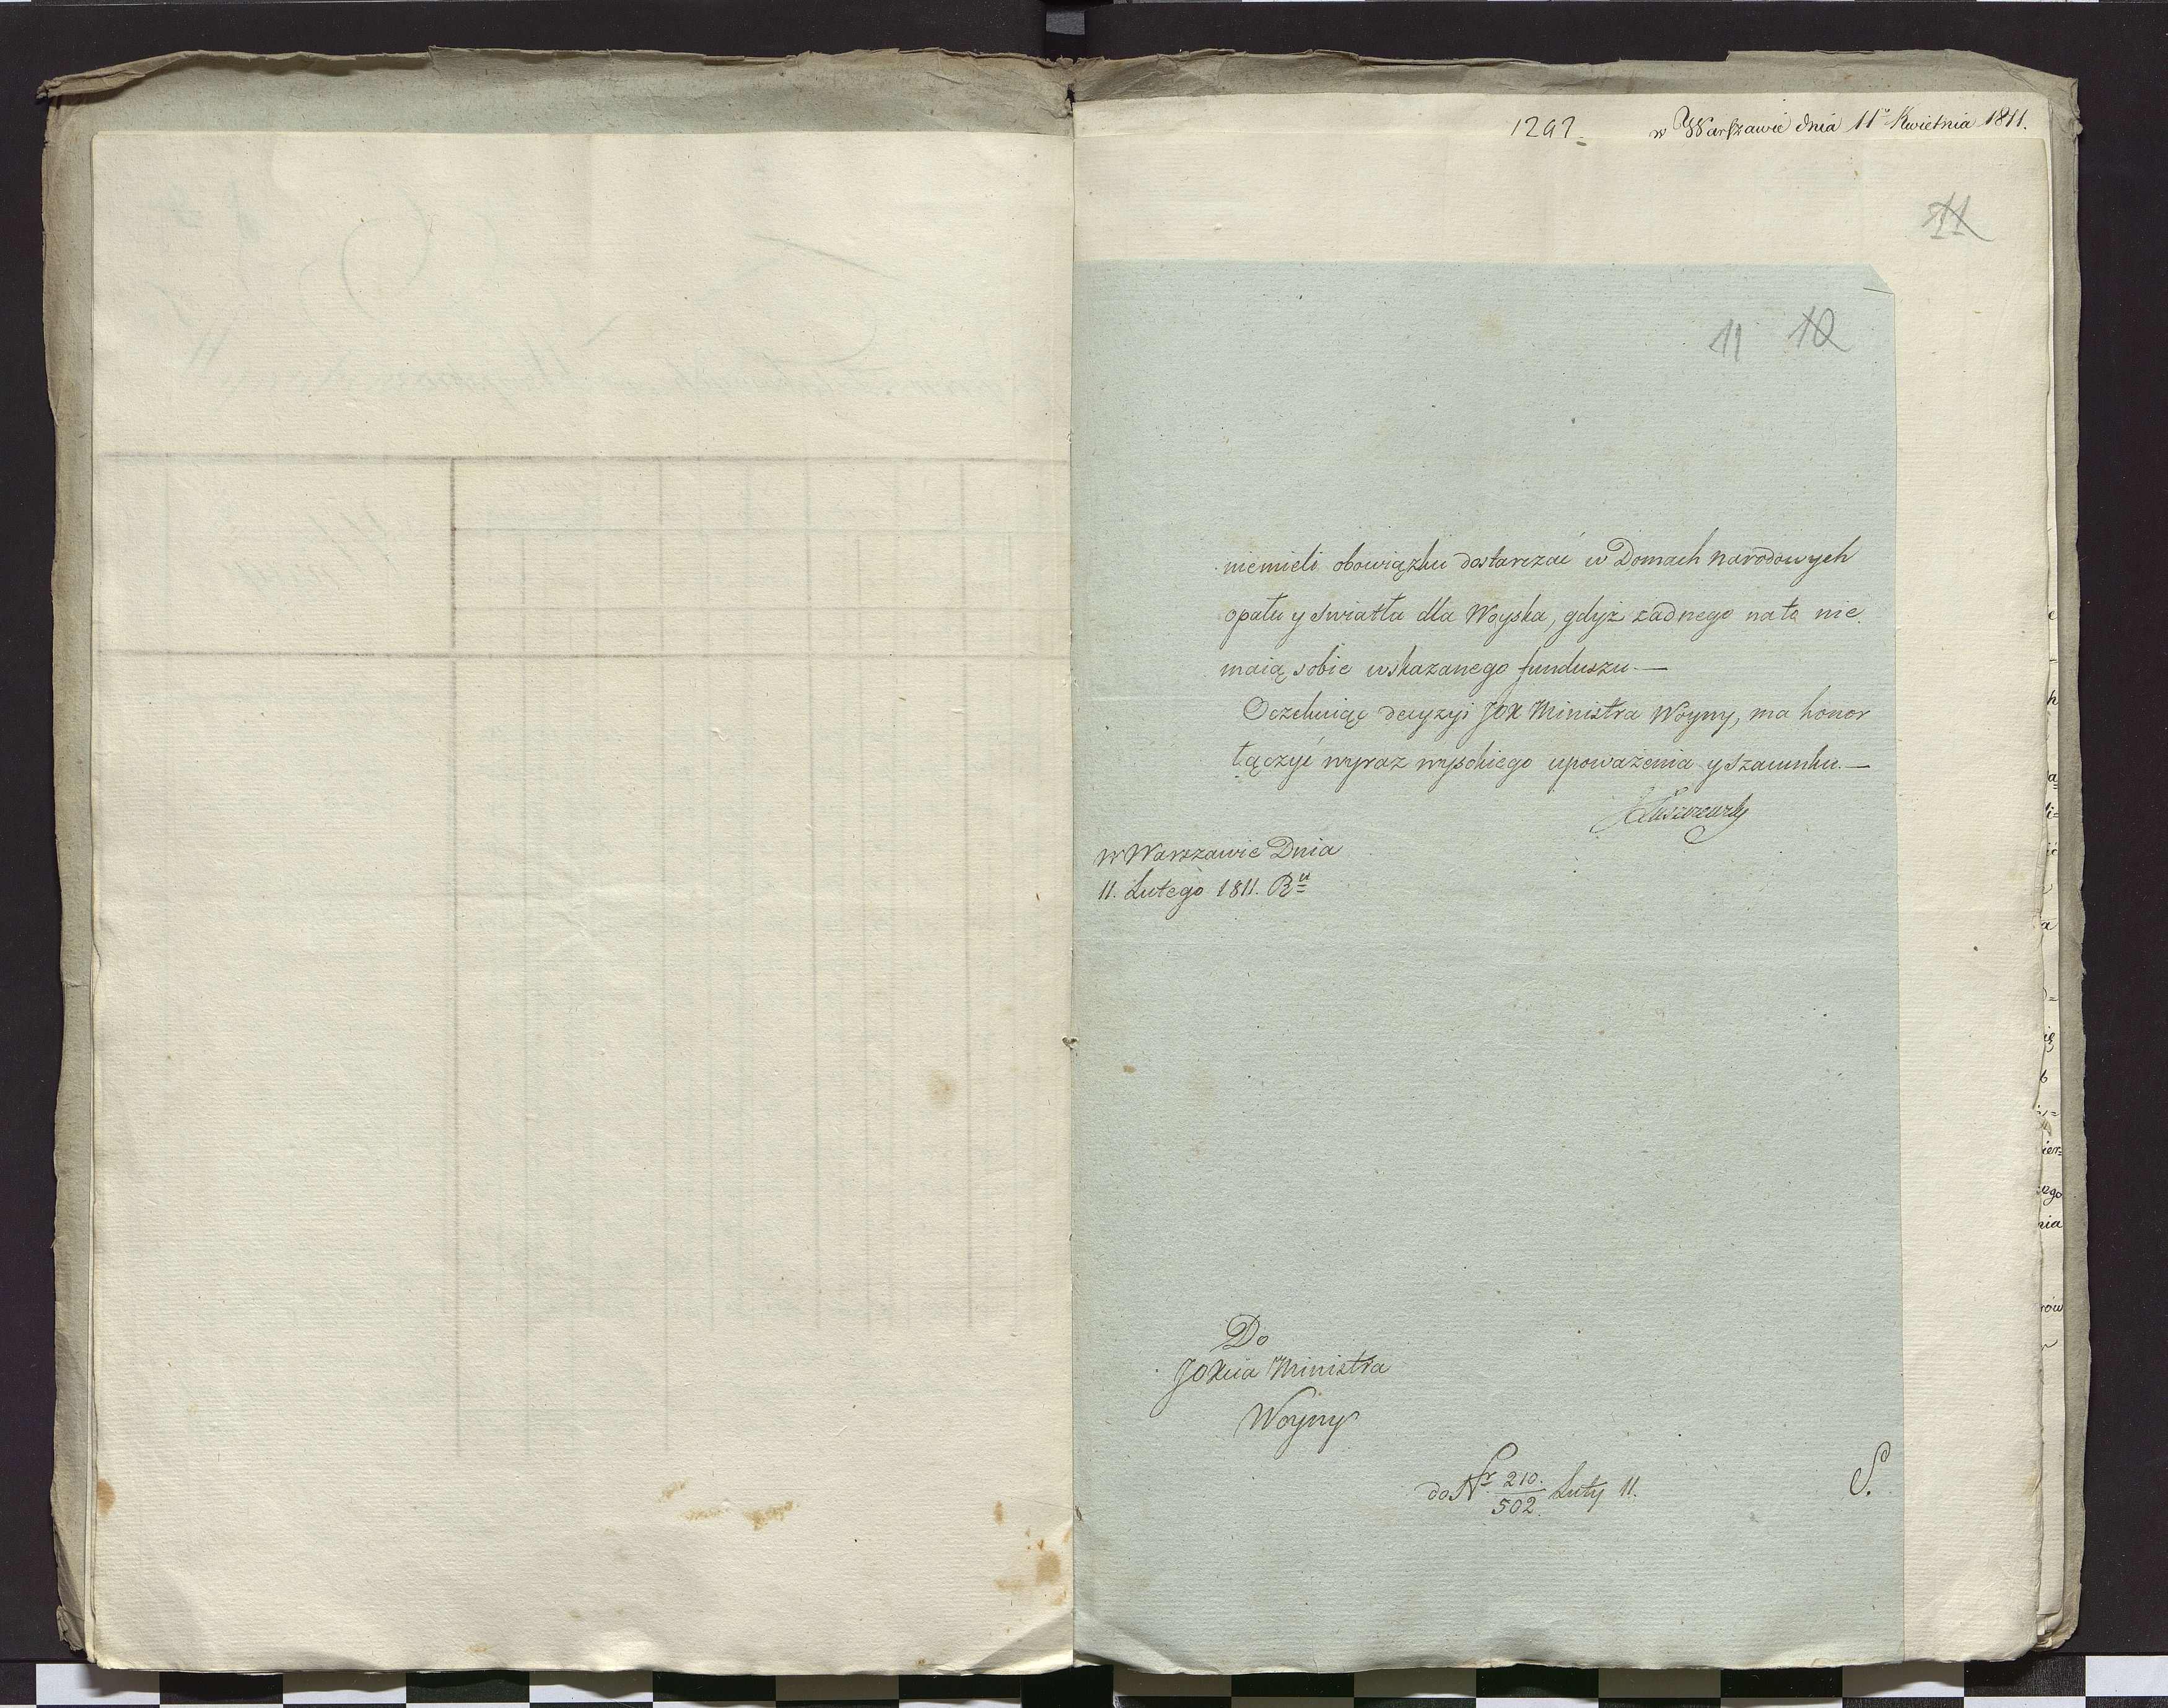 1292
w Warszawie dnia 11º Kwietnia 1811.
11
11 12
niemieli obowiązku dostarczać w Domach narodowych
opału y swiatła dla Woyska, gdyż żadnego na to nie
maią sobie wskazanego funduszu —
Oczekuiąc decyzyi JOX Ministra Woyny, ma honor
łączyć wyraz wysokiego upoważenia y szacunku. —
JŁuszczewsky
w Warszawie Dnia
11. Lutego 1811. Rᵘ
Do
JOXcia Ministra
Woyny
do Nr 210./502. Luty 11.
S.